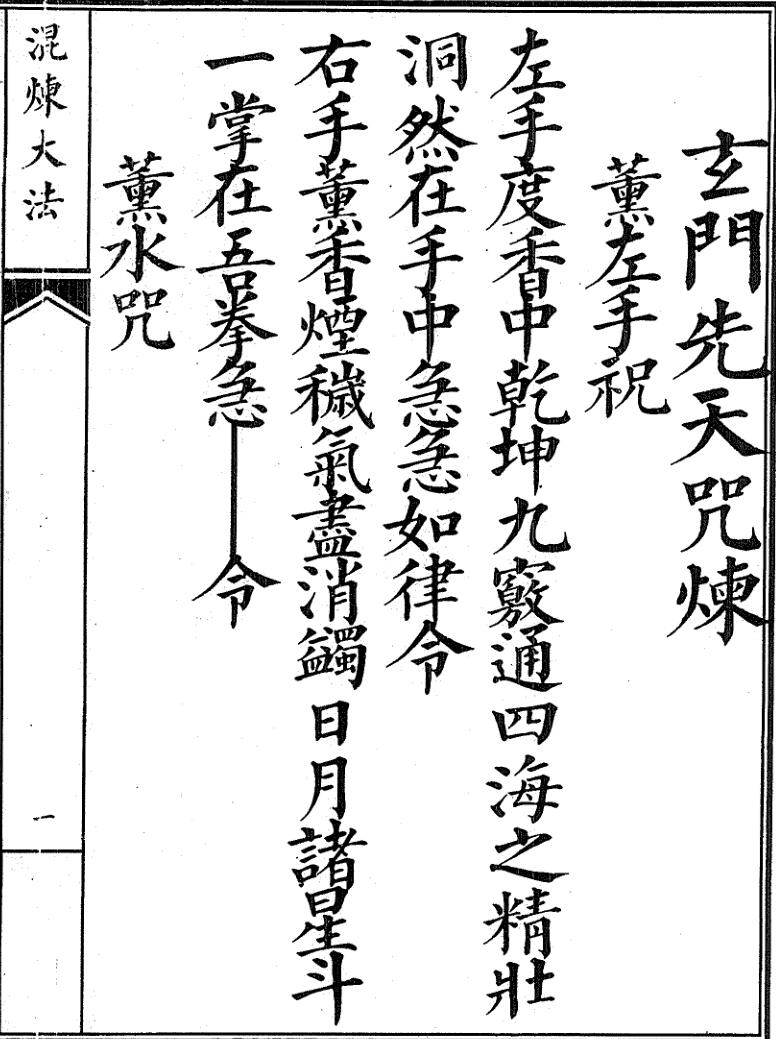 玄門先天咒煉
薰左手祝
左手度香中乾坤九竅通四海之精壯
洞然在手中急急如律令
右手薰香煙穢氣盡消蠲日月諸星斗
一掌在吾拳急——令
薰水咒
混煉大法
一